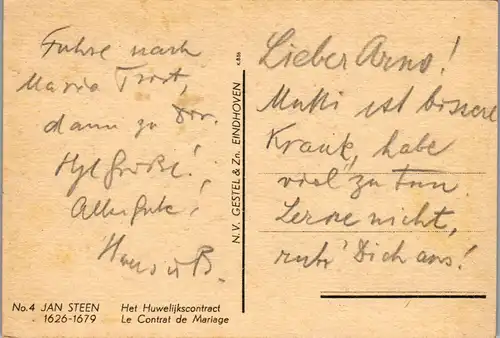 Fuhre nach
Maria Trost,
dann zu Dir.
Alles Gute!
Hans u B.
No.4 JAN STEEN
1626-1679
Het Huwelijkscontract
Le Contrat de Mariage
N.V. GESTEL & Zn. EINDHOVEN
Lieber Arno!
Mutti ist bissere
Krank, habe
viel zu tun
Lerne nicht,
ruh' Dich aus!